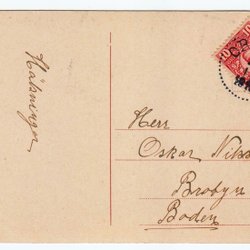 Hälsningar
Herr
Oskar Nils
Brobyn
Boden